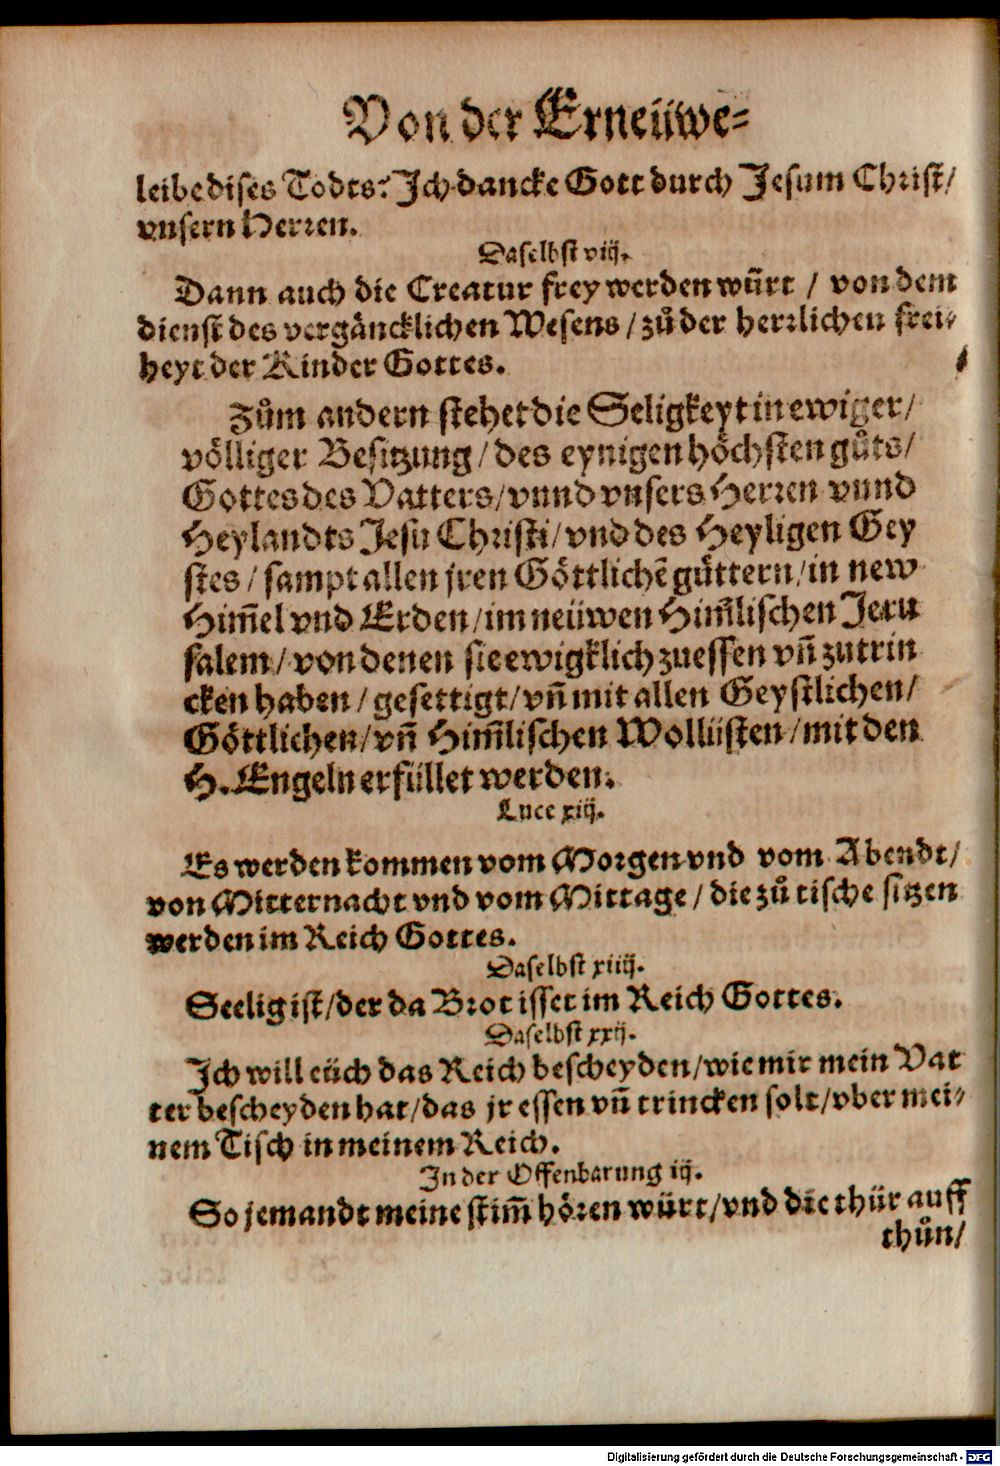 Von der Erneüwe-
leibe dises Todts? Ich dancke Gott durch Jesum Christ/
vnsern Herren.
Daselbst viij.
Dann auch die Creatur frey werden wůrt / von dem
dienst des vergäncklichen Wesens / zů der herrlichen frei-
heyt der Kinder Gottes.
Zům andern stehet die Seligkeyt in ewiger/
völliger Besitzung / des eynigen höchsten gůts/
Gottes des Vatters/ vnnd vnsers Herren vnnd
Heylandts Jesu Christi/ vnd des Heyligen Gey
stes / sampt allen jren Göttlichē gůttern/ in new
Him̄el vnd Erden / im neüwen Him̄lischen Jeru
salem/ von denen sie ewigklich zuessen vn̄ zutrin
cken haben / gesettigt/ vn̄ mit allen Geystlichen/
Göttlichen/ vn̄ Him̄lischen Wollüsten / mit den
H. Engeln erfüllet werden.
Luce xiij.
Es werden kommen vom Morgen vnd vom Abendt/
von Mitternacht vnd vom Mittage / die zů tische sitzen
werden im Reich Gottes.
Daselbst xiiij.
Seelig ist/ der da Brot isset im Reich Gottes.
Daselbst xxij.
Ich will eüch das Reich bescheyden/ wie mir mein Vat
ter bescheyden hat/ das jr essen vn̄ trincken solt/ vber mei-
nem Tisch in meinem Reich.
In der Offenbarung iij.
So jemandt meine stim̄ hören würt/ vnd die thür auff
thůn/
Digitalisierung gefördert durch die Deutsche Forschungsgemeinschaft - DFG